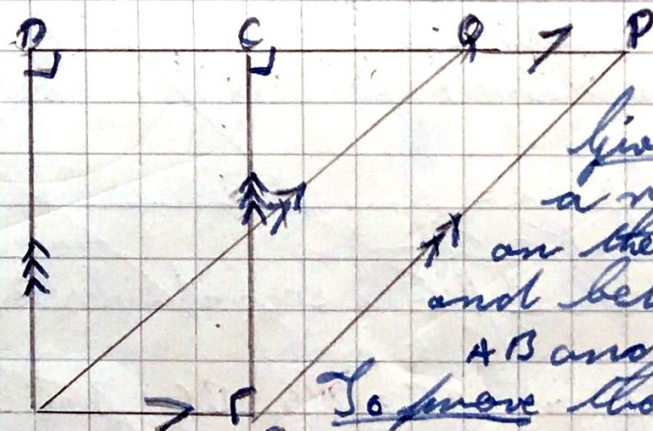 D C Q P
Giv
a
on the
and be
AB and
To prove tha